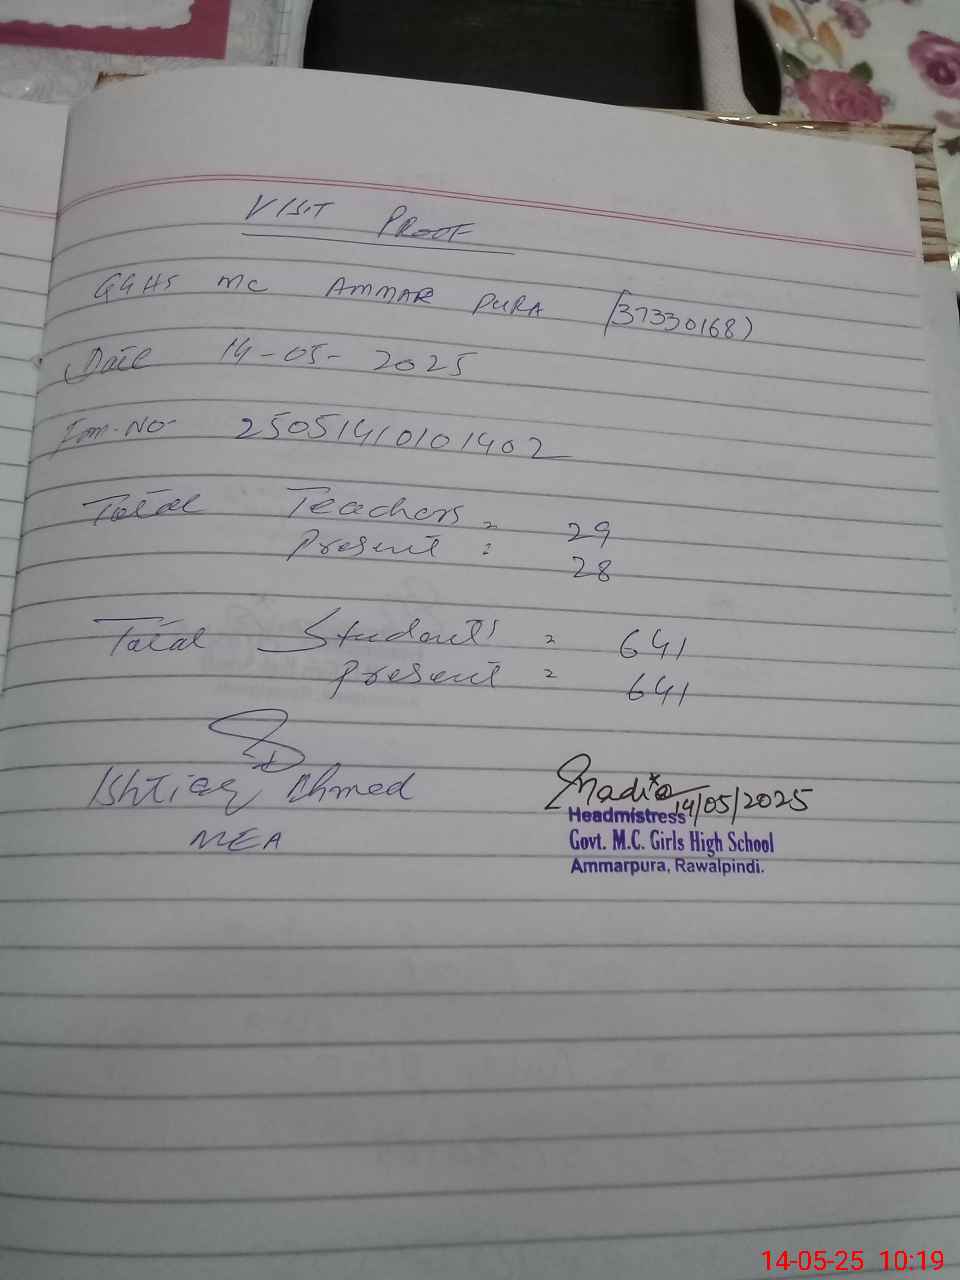 VISIT PROOF
GGHS MC AMMAR PURA (37330168)
Date 14-05-2025
Total Teachers = 29
Present = 28
Total Students = 641
Present = 641
Ishtiaq Ahmed
MEA
Nadia 14/05/2025
Headmistress
Govt. M.C. Girls High School
Ammarpura, Rawalpindi.
14-05-25 10:19